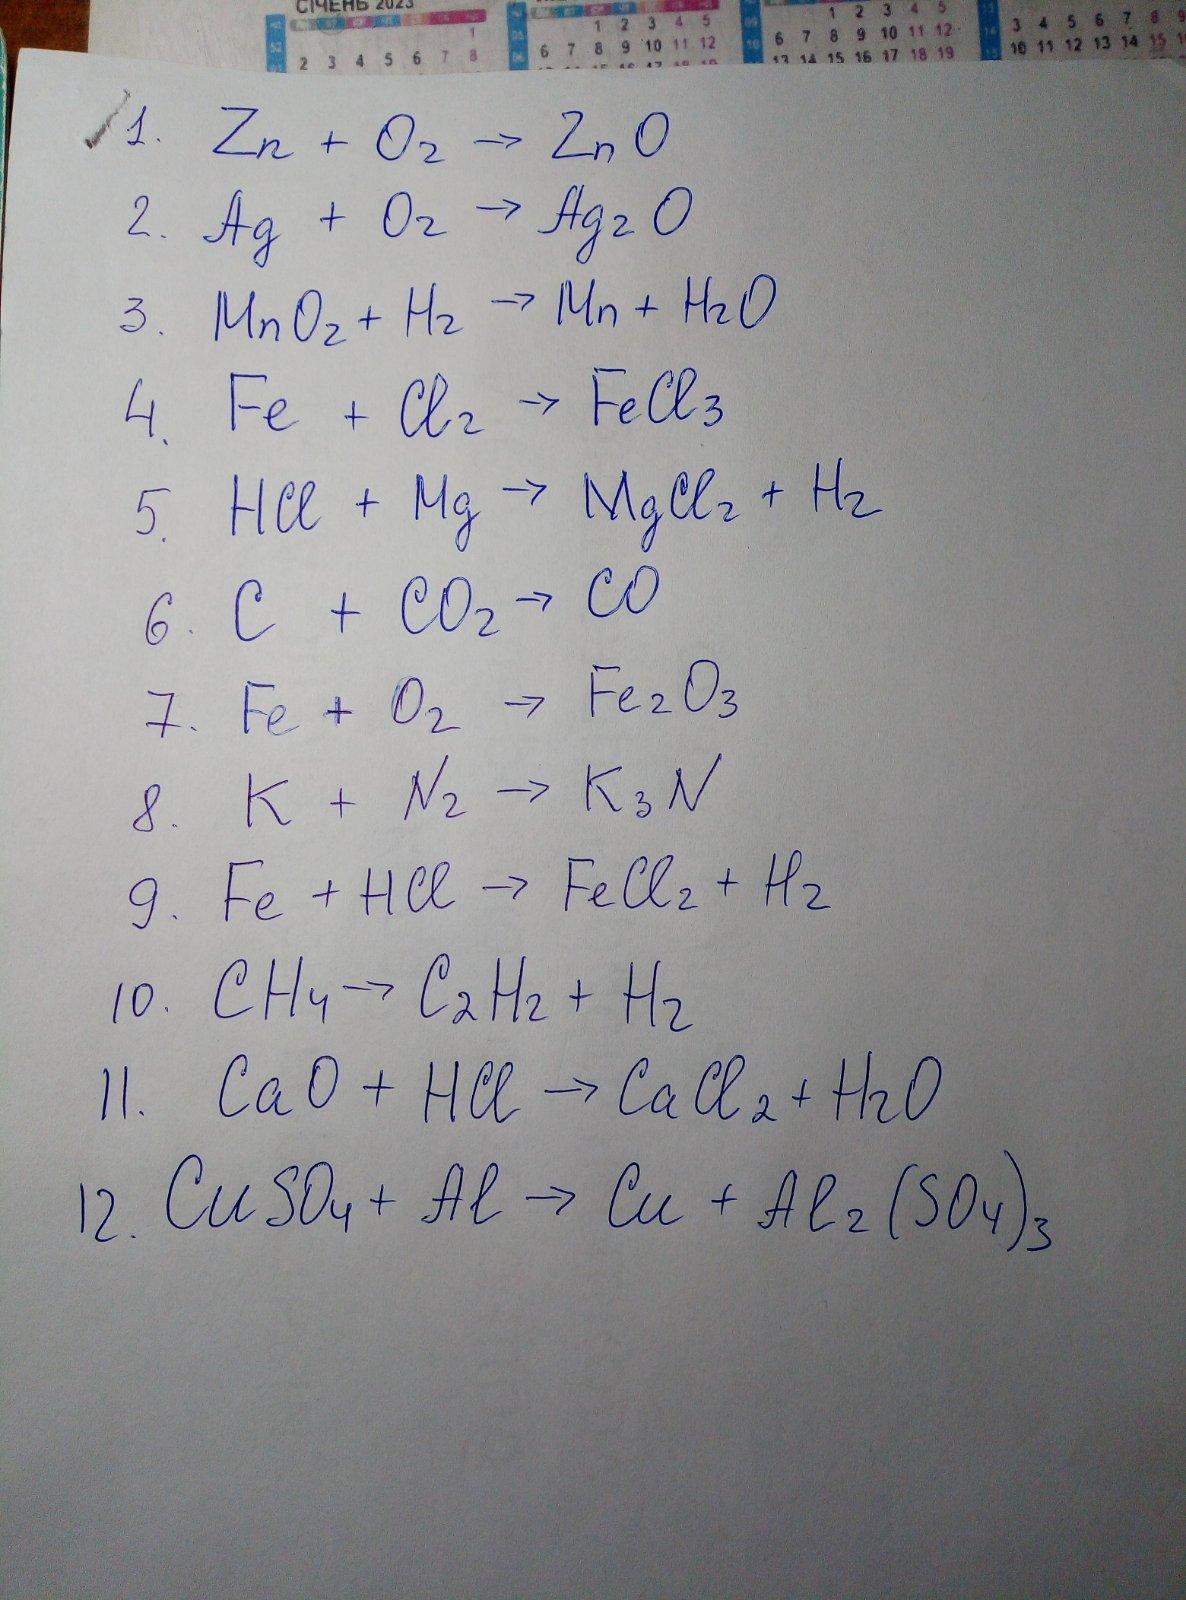 СІЧЕНЬ 2023
1 1 2 3 4 5 1 2 3 4 5
2 3 4 5 6 7 8 6 7 8 9 10 11 12 6 7 8 9 10 11 12 3 4 5 6 7 8 9
13 14 15 16 17 18 19 10 11 12 13 14 15
1. Zn + O₂ → ZnO
2. Ag + O₂ → Ag₂O
3. MnO₂ + H₂ → Mn + H₂O
4. Fe + Cl₂ → FeCl₃
5. HCl + Mg → MgCl₂ + H₂
6. C + CO₂ → CO
7. Fe + O₂ → Fe₂O₃
8. K + N₂ → K₃N
9. Fe + HCl → FeCl₂ + H₂
10. CH₄ → C₂H₂ + H₂
11. CaO + HCl → CaCl₂ + H₂O
12. CuSO₄ + Al → Cu + Al₂(SO₄)₃